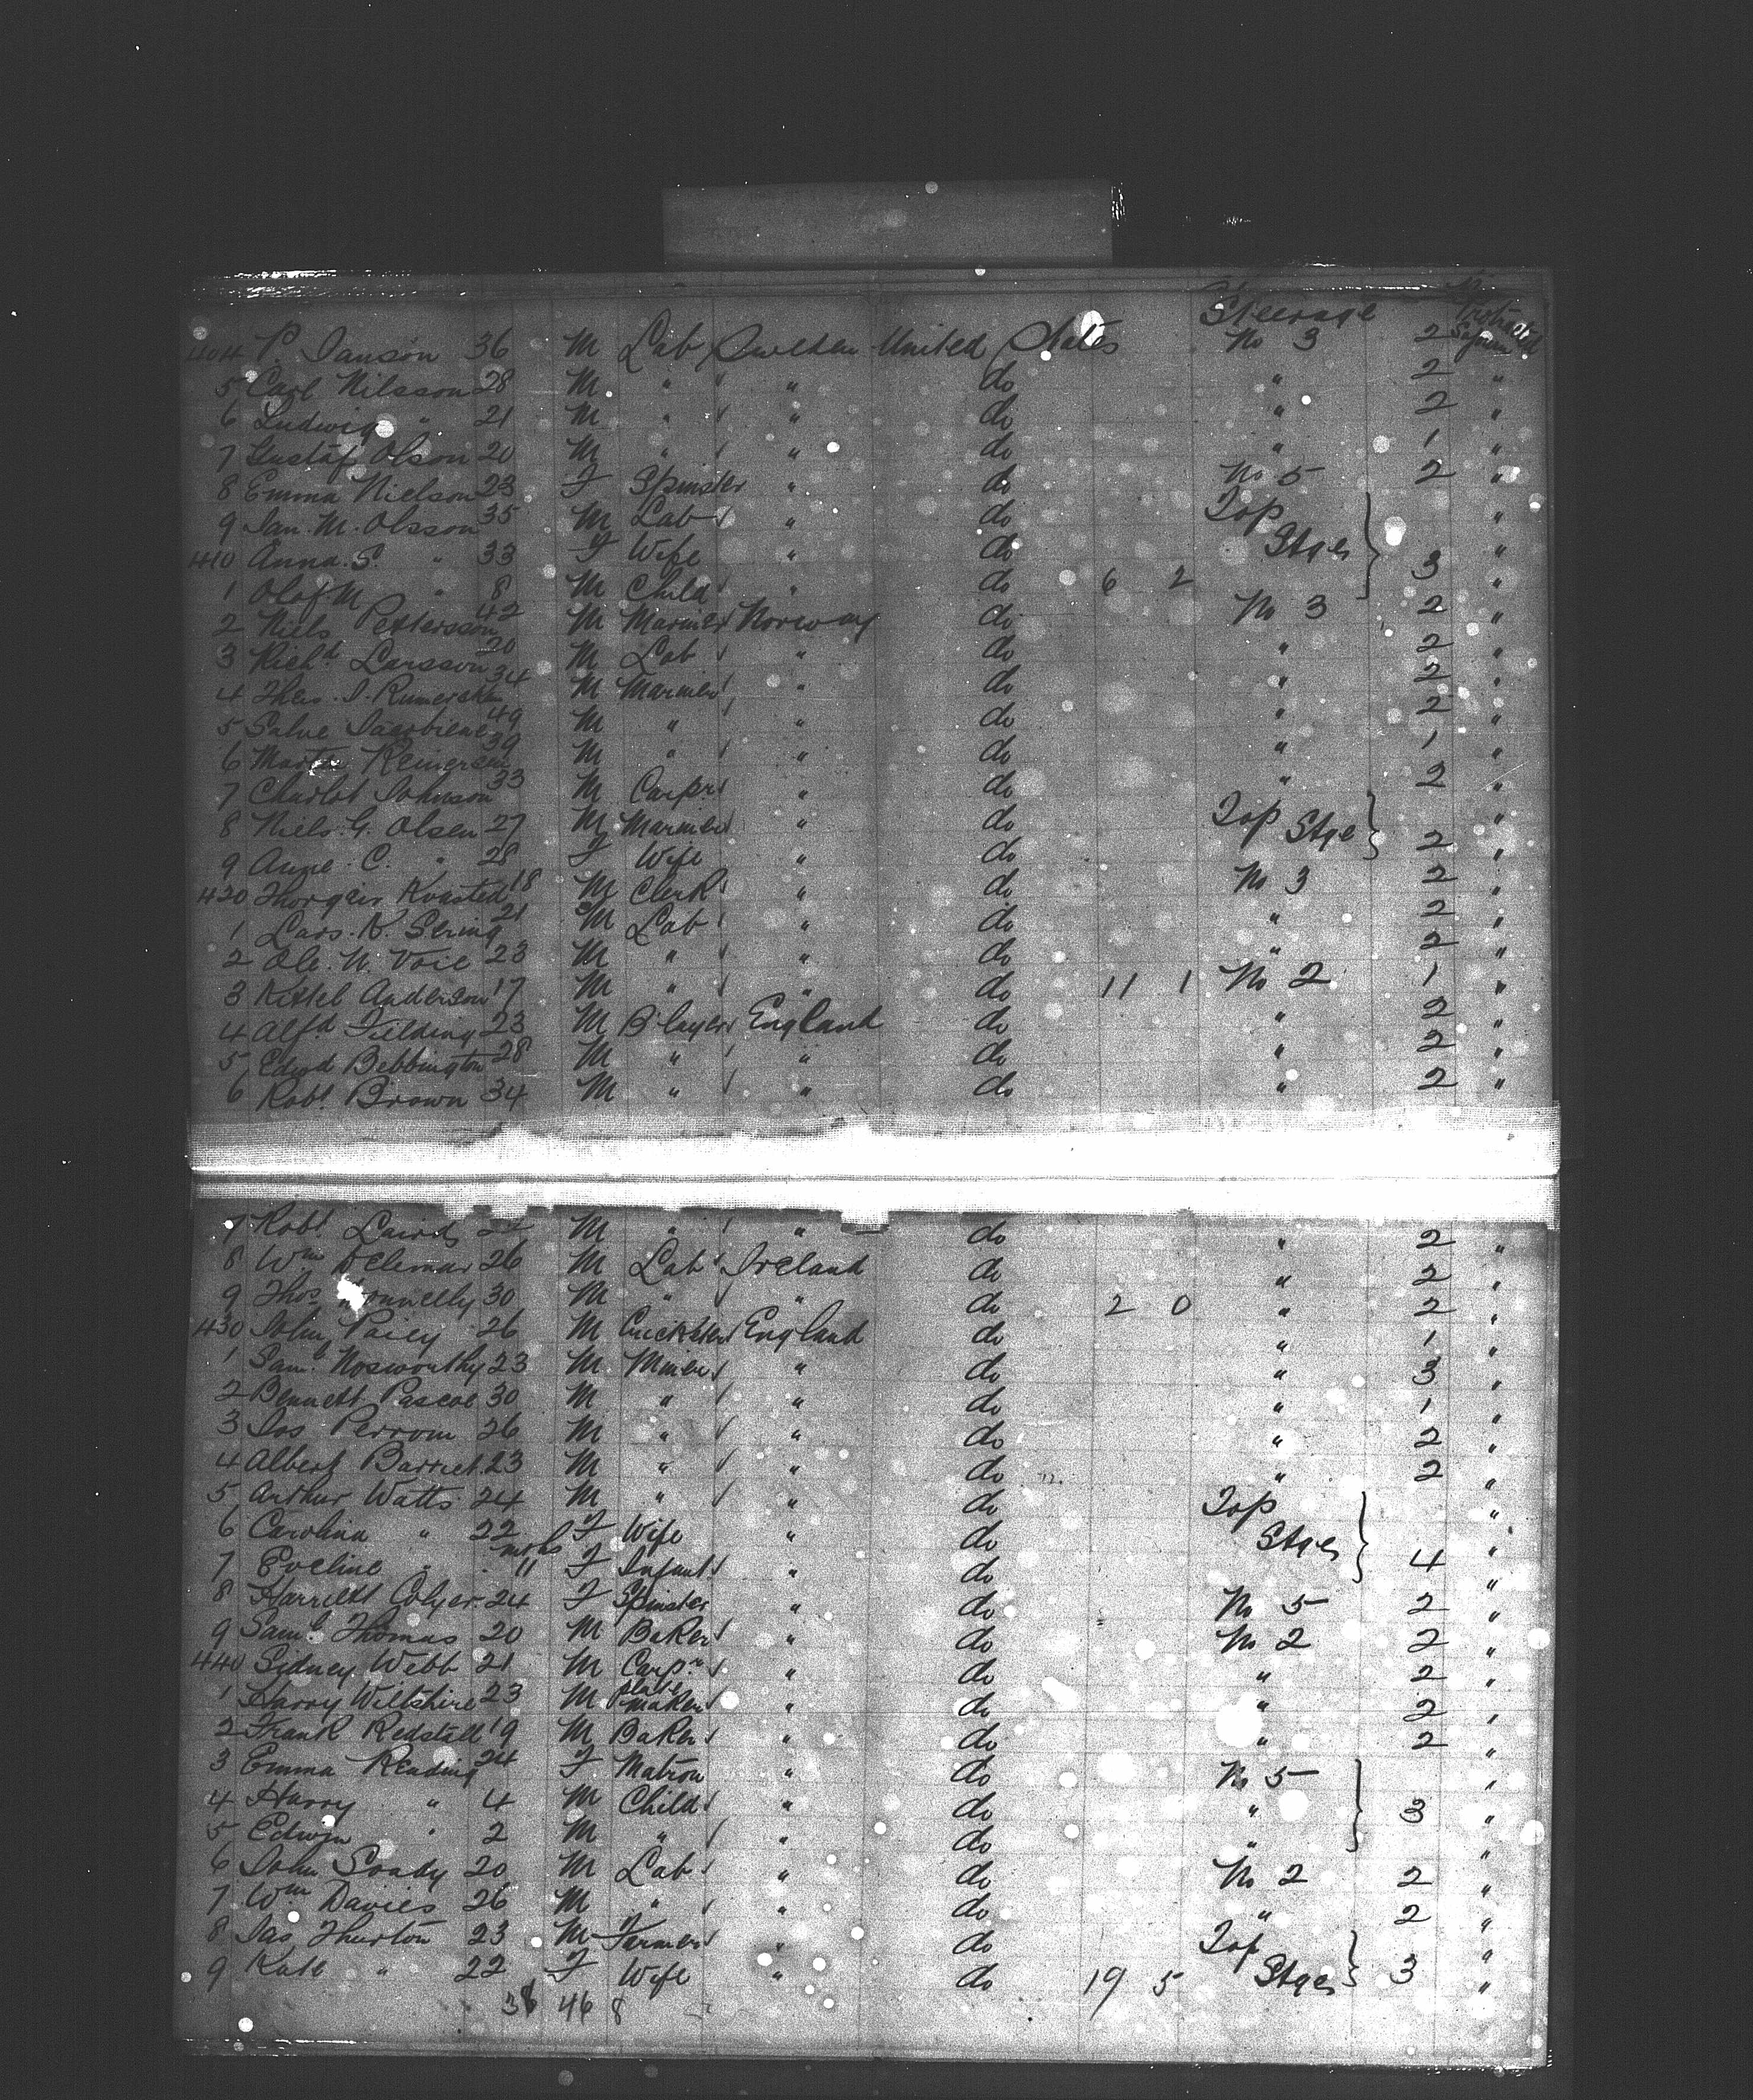 Steerage
404 P. Janson 36 M Lab Sweden United States No 3 2
5 Carl Nilsson 28 M " " do " 2 "
6 Ludwig " 21 M " " do " 2 "
7 Gustaf Olson 20 M " " do " 1 "
8 Emma Nielson 23 F Spinster " do No 5 2 "
9 Jan. M. Olsson 35 M Lab " do Top "
410 Anna. S. " 33 F Wife " do Stge 3 "
1 Olof M " 8 M Child " do 6 2 "
2 Niels Pettersson 42 M Marmer Norway do No 3 2 "
3 Richd Larsson 20 M Lab " do " 2 "
4 34 M Marmer " do " 2 "
5 Salve 49 M " " do " 2 "
6 Reinersen 39 M " " do " 1 "
7 Charlot Johnson 33 M Carpr " do " 2 "
8 Niels. G. Olsen 27 M Marmer " do Top Stge "
9 Anne. C. " 28 F Wife " do 2 "
420 Thorgeir Kvasted 18 M Clerk " do No 3 2 "
1 Lars. K. 21 M Lab " do " 2 "
2 Ole. N. Voie 23 M " " do " 2 "
3 Kittel Anderson 17 M " " do 11 1 No 2 1 "
4 Alfd Fielding 23 M B'layer England do " 2 "
5 Edwd Bebbington 28 M " " do " 2 "
6 Robt Brown 34 M " " do " 2 "
7 Robt M " " do " 2 "
8 Wm 26 M Lab Ireland do " 2 "
9 Thos 30 M " " do 2 0 " 2 "
430 John 26 M England do " 1 "
1 Saml Nosworthy 23 M Miner " do " 3 "
2 Bennett Pascoe 30 M " " do " 1 "
3 Jos Perrom 26 M " " do " 2 "
4 Albert Barriet 23 M " " do " 2 "
5 Arthur Watts 24 M " " do Top "
6 Carolina " 22 F Wife " do Stge "
7 Eveline " mths 11 F Infant " do 4 "
8 Harriett Colyer 24 F Spinster " do No 5 2 "
9 Saml Thomas 20 M Baker " do No 2 2 "
440 Sydney Webb 21 M Carpr " do " 2 "
1 Harry Wiltshire 23 M maker " do " 2 "
2 Frank Redstall 19 M Baker " do " 2 "
3 Emma Reading 24 F Matron " do No 5 "
4 Harry " 4 M Child " do " 3 "
5 Edwin " 2 M " " do " "
6 John Soady 20 M Lab " do No 2 2 "
7 Wm Davies 26 M " " do " 2 "
8 Jas Thurton 23 M Farmer " do Top "
9 Kate " 22 F Wife " do 19 5 Stge 3 "
38 46 8